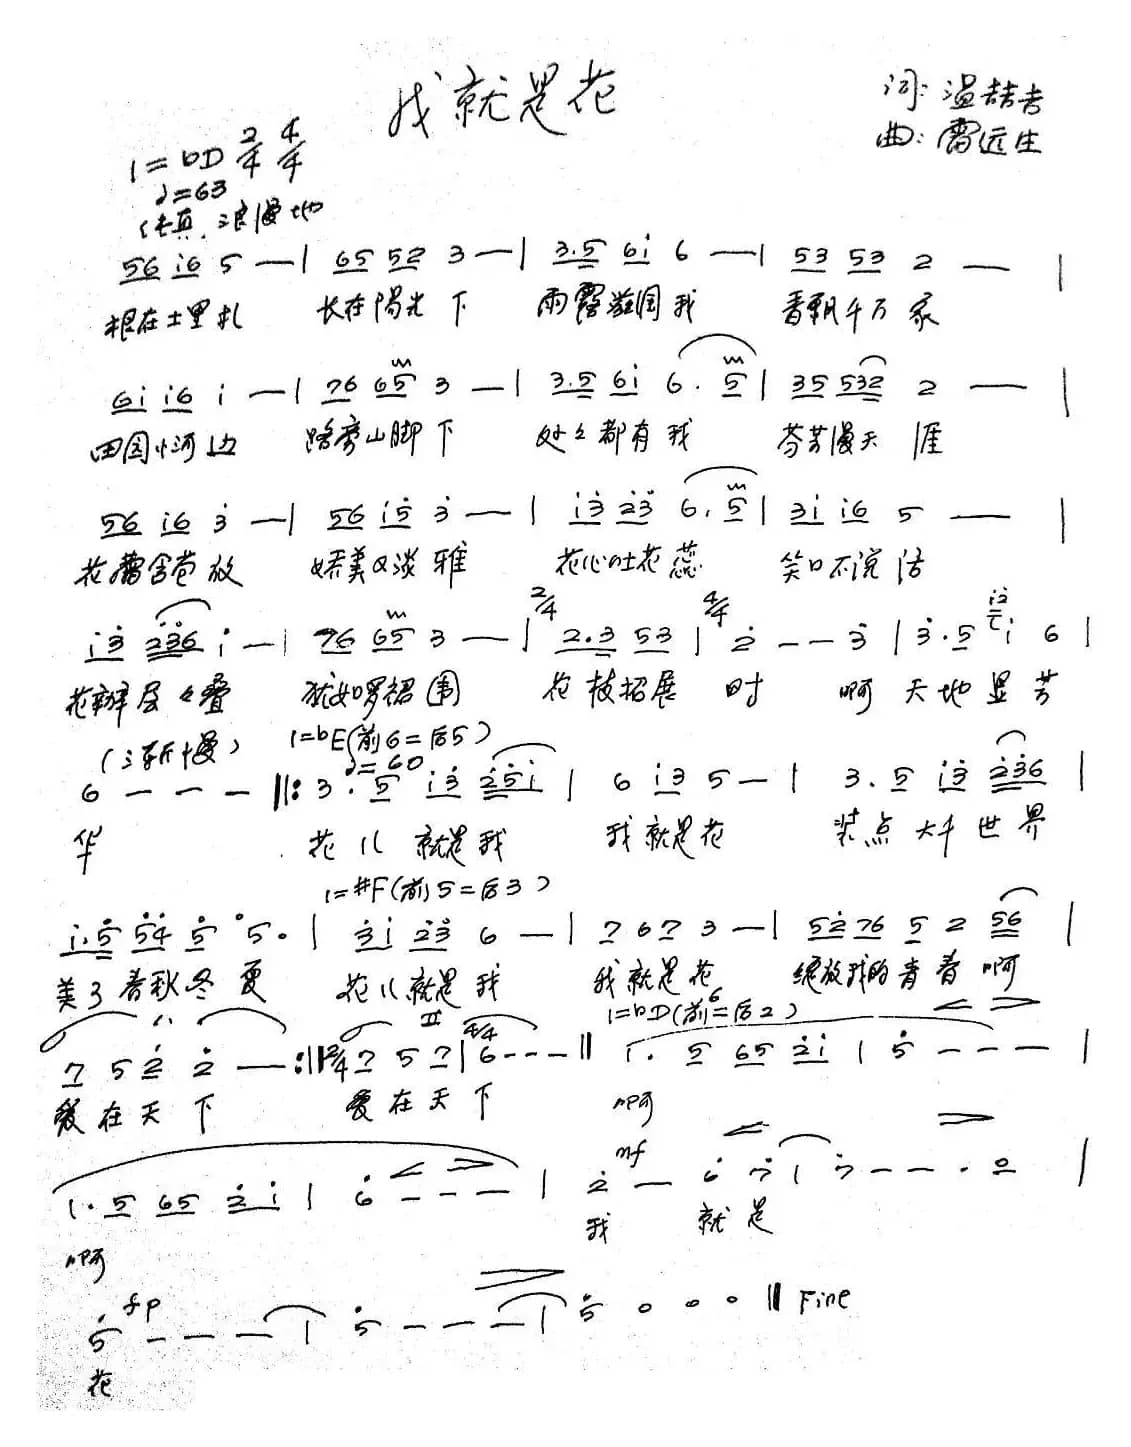 我就是花
词: 温喆吉
曲: 雷远生
1=bD 2/4 4/4
♩=63
浪漫地
56 i6 5 — | 65 52 3 — | 3.5 6i 6 — | 53 53 2 — |
根在土里扎 长在陽光下 雨露滋润我 香飘千万家
6i i6 i — | 76 65 3 — | 3.5 6i 6. 5 | 35 532 2 — |
田园河边 路旁山脚下 处々都有我 芬芳漫天涯
56 i6 3 — | 56 i5 3 — | i3 23 6. 5 | 3i i6 5 — |
花蕾含苞放 娇美又淡雅 花心吐花蕊 笑口不说话
2/4 4/4
i3 236 i — | 76 65 3 — | 2.3 53 | 2 — — 3 | 3.5 i2 i 6 |
花瓣层々叠 犹如罗裙围 花枝招展时 啊 天地显芳
(渐慢) 1=bE(前6=后5)
♩=60
6 — — — ‖: 3. 5 i3 25i | 6 i3 5 — | 3. 5 i3 236 |
华 花儿就是我 我就是花 装点大千世界
1=#F(前5=后3)
i.5 54 5 5. | 3i 23 6 — | 7 67 3 — | 52 76 5 2 56 |
美了春秋冬夏 花儿就是我 我就是花 绽放我的青春啊
1=bD(前6=后2)
II
7 5 2 2 — :‖ 2/4 7 5 7 | 4/4 6 — — — ‖ 1. 5 65 2i | 5 — — — |
爱在天下 爱在天下 啊
mf
1. 5 65 2i | 6 — — — | 2 — 6 7 | 7 — — . 0 |
啊 我 就是
fp
5 — — — | 5 — — — | 5 0 0 0 ‖ Fine
花